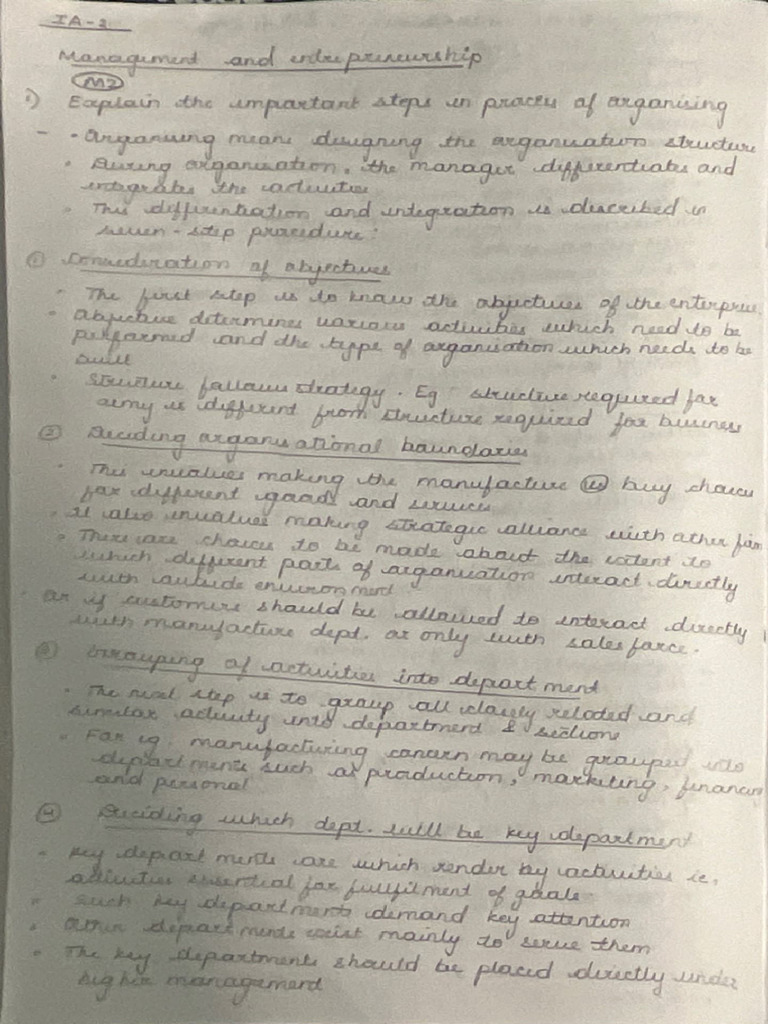 IA-2
Management and entrepreneurship
M2
1) Explain the important steps in process of organising
- • Organising means designing the organisation structure
• During organisation, the manager differentiates and
integrates the activities
• This differentiation and integration is described in
seven-step procedure:
① Consideration of objectives
• The first step is to know the objectives of the enterprise
• Objective determines various activities which need to be
performed and the type of organisation which needs to be
built
• Structure follows strategy. Eg structure required for
army is different from structure required for business
② Deciding organisational boundaries
• This involves making the manufacture buy choices
for different goods and services
• It also involves making strategic alliance with other firm
• There are choices to be made about the extent to
which different parts of organisation interact directly
with outside environment
• or if customers should be allowed to interact directly
with manufacture dept. or only with sales force.
③ Grouping of activities into department
• The next step is to group all closely related and
similar activity into department & sections
• For eg. manufacturing concern may be grouped into
departments such as production, marketing, financing
and personal
④ Deciding which dept. will be key department
• Key departments are which render key activities ie,
activities essential for fulfilment of goals
• Such key departments demand key attention
• Other departments exist mainly to serve them
• The key departments should be placed directly under
higher management